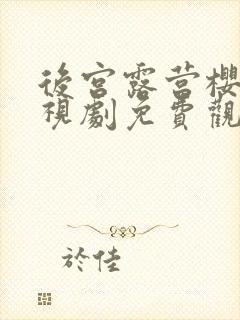 後宮露营櫻
視劇免費觀
於佳